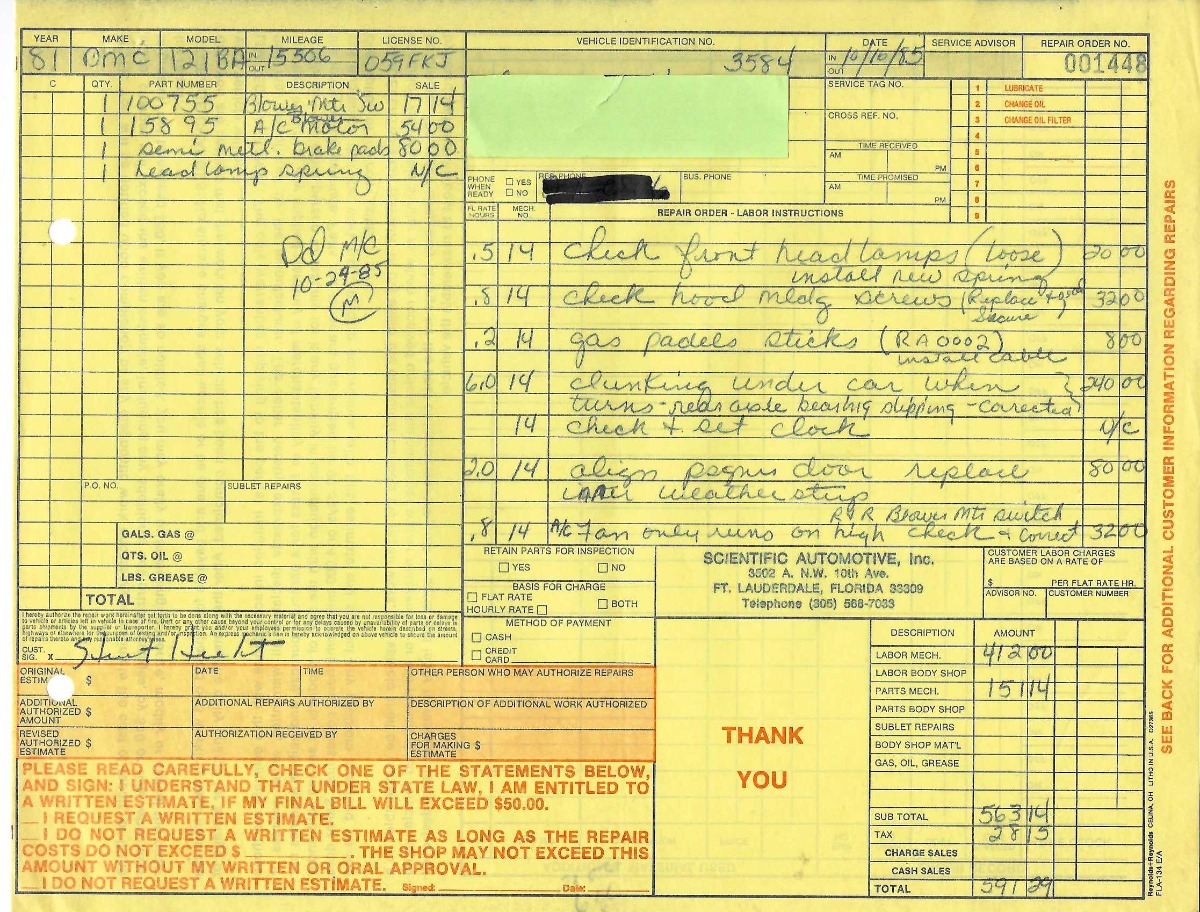 YEAR MAKE MODEL MILEAGE LICENSE NO. VEHICLE IDENTIFICATION NO. DATE SERVICE ADVISOR REPAIR ORDER NO.
81 DMC 121BA IN OUT 15506 059FKJ 3584 IN 10/10/85 OUT 001448
C QTY. PART NUMBER DESCRIPTION SALE
1 100755 Blower Mtr Sw 17 14
1 15895 A/C Blower Motor 54 00
1 semi metl. brake pads 80 00
1 head lamp spring N/C
Pd M/C
10-24-85
M
P.O. NO. SUBLET REPAIRS
GALS. GAS @
QTS. OIL @
LBS. GREASE @
TOTAL
SERVICE TAG NO.
CROSS REF. NO.
TIME RECEIVED
AM PM
TIME PROMISED
AM PM
1 LUBRICATE
2 CHANGE OIL
3 CHANGE OIL FILTER
4
5
6
7
8
9
PHONE WHEN READY YES NO RES. PHONE BUS. PHONE
FL. RATE HOURS MECH. NO. REPAIR ORDER - LABOR INSTRUCTIONS
.5 14 check front head lamps (loose) 20 00
install new spring
.8 14 check hood mldg screws (Replace + Secure 32 00
.2 14 gas padels sticks (RA0002) 8 00
install cable
6.0 14 clunking under car when 240 00
turns - rear axle bearing slipping - corrected
14 check + set clock N/C
2.0 14 align door replace 80 00
weather strip
R + R Blower Mtr switch
.8 14 A/C Fan only runs on high check + correct 32 00
RETAIN PARTS FOR INSPECTION
YES NO
BASIS FOR CHARGE
FLAT RATE
HOURLY RATE BOTH
METHOD OF PAYMENT
CASH
CREDIT CARD
SCIENTIFIC AUTOMOTIVE, Inc.
3502 A. N.W. 10th Ave.
FT. LAUDERDALE, FLORIDA 33309
Telephone (305) 566-7033
CUSTOMER LABOR CHARGES
ARE BASED ON A RATE OF
$ PER FLAT RATE HR.
ADVISOR NO. CUSTOMER NUMBER
I hereby authorize the repair work hereinafter set forth to be done along with the necessary material and agree that you are not responsible for loss or damage
to vehicle or articles left in vehicle in case of fire, theft or any other cause beyond your control or for any delays caused by unavailability of parts or delays in
parts shipments by the supplier or transporter. I hereby grant you and/or your employees permission to operate the vehicle herein described on streets,
highways or elsewhere for the purpose of testing and/or inspection. An express mechanic's lien is hereby acknowledged on above vehicle to secure the amount
of repairs thereto
CUST. SIG. X
ORIGINAL ESTIM $ DATE TIME OTHER PERSON WHO MAY AUTHORIZE REPAIRS
ADDITIONAL AUTHORIZED AMOUNT $ ADDITIONAL REPAIRS AUTHORIZED BY DESCRIPTION OF ADDITIONAL WORK AUTHORIZED
REVISED AUTHORIZED ESTIMATE $ AUTHORIZATION RECEIVED BY CHARGES FOR MAKING ESTIMATE $
PLEASE READ CAREFULLY, CHECK ONE OF THE STATEMENTS BELOW,
AND SIGN: I UNDERSTAND THAT UNDER STATE LAW, I AM ENTITLED TO
A WRITTEN ESTIMATE, IF MY FINAL BILL WILL EXCEED $50.00.
__ I REQUEST A WRITTEN ESTIMATE.
__ I DO NOT REQUEST A WRITTEN ESTIMATE AS LONG AS THE REPAIR
COSTS DO NOT EXCEED $ ________. THE SHOP MAY NOT EXCEED THIS
AMOUNT WITHOUT MY WRITTEN OR ORAL APPROVAL.
__ I DO NOT REQUEST A WRITTEN ESTIMATE. Signed: ________ Date: ________
THANK
YOU
DESCRIPTION AMOUNT
LABOR MECH. 412 00
LABOR BODY SHOP
PARTS MECH. 151 14
PARTS BODY SHOP
SUBLET REPAIRS
BODY SHOP MAT'L
GAS, OIL, GREASE
SUB TOTAL 563 14
TAX 28 15
CHARGE SALES
CASH SALES
TOTAL 591 29
SEE BACK FOR ADDITIONAL CUSTOMER INFORMATION REGARDING REPAIRS
Reynolds+Reynolds CELINA, OH LITHO IN U.S.A.
FLA-134 E/A